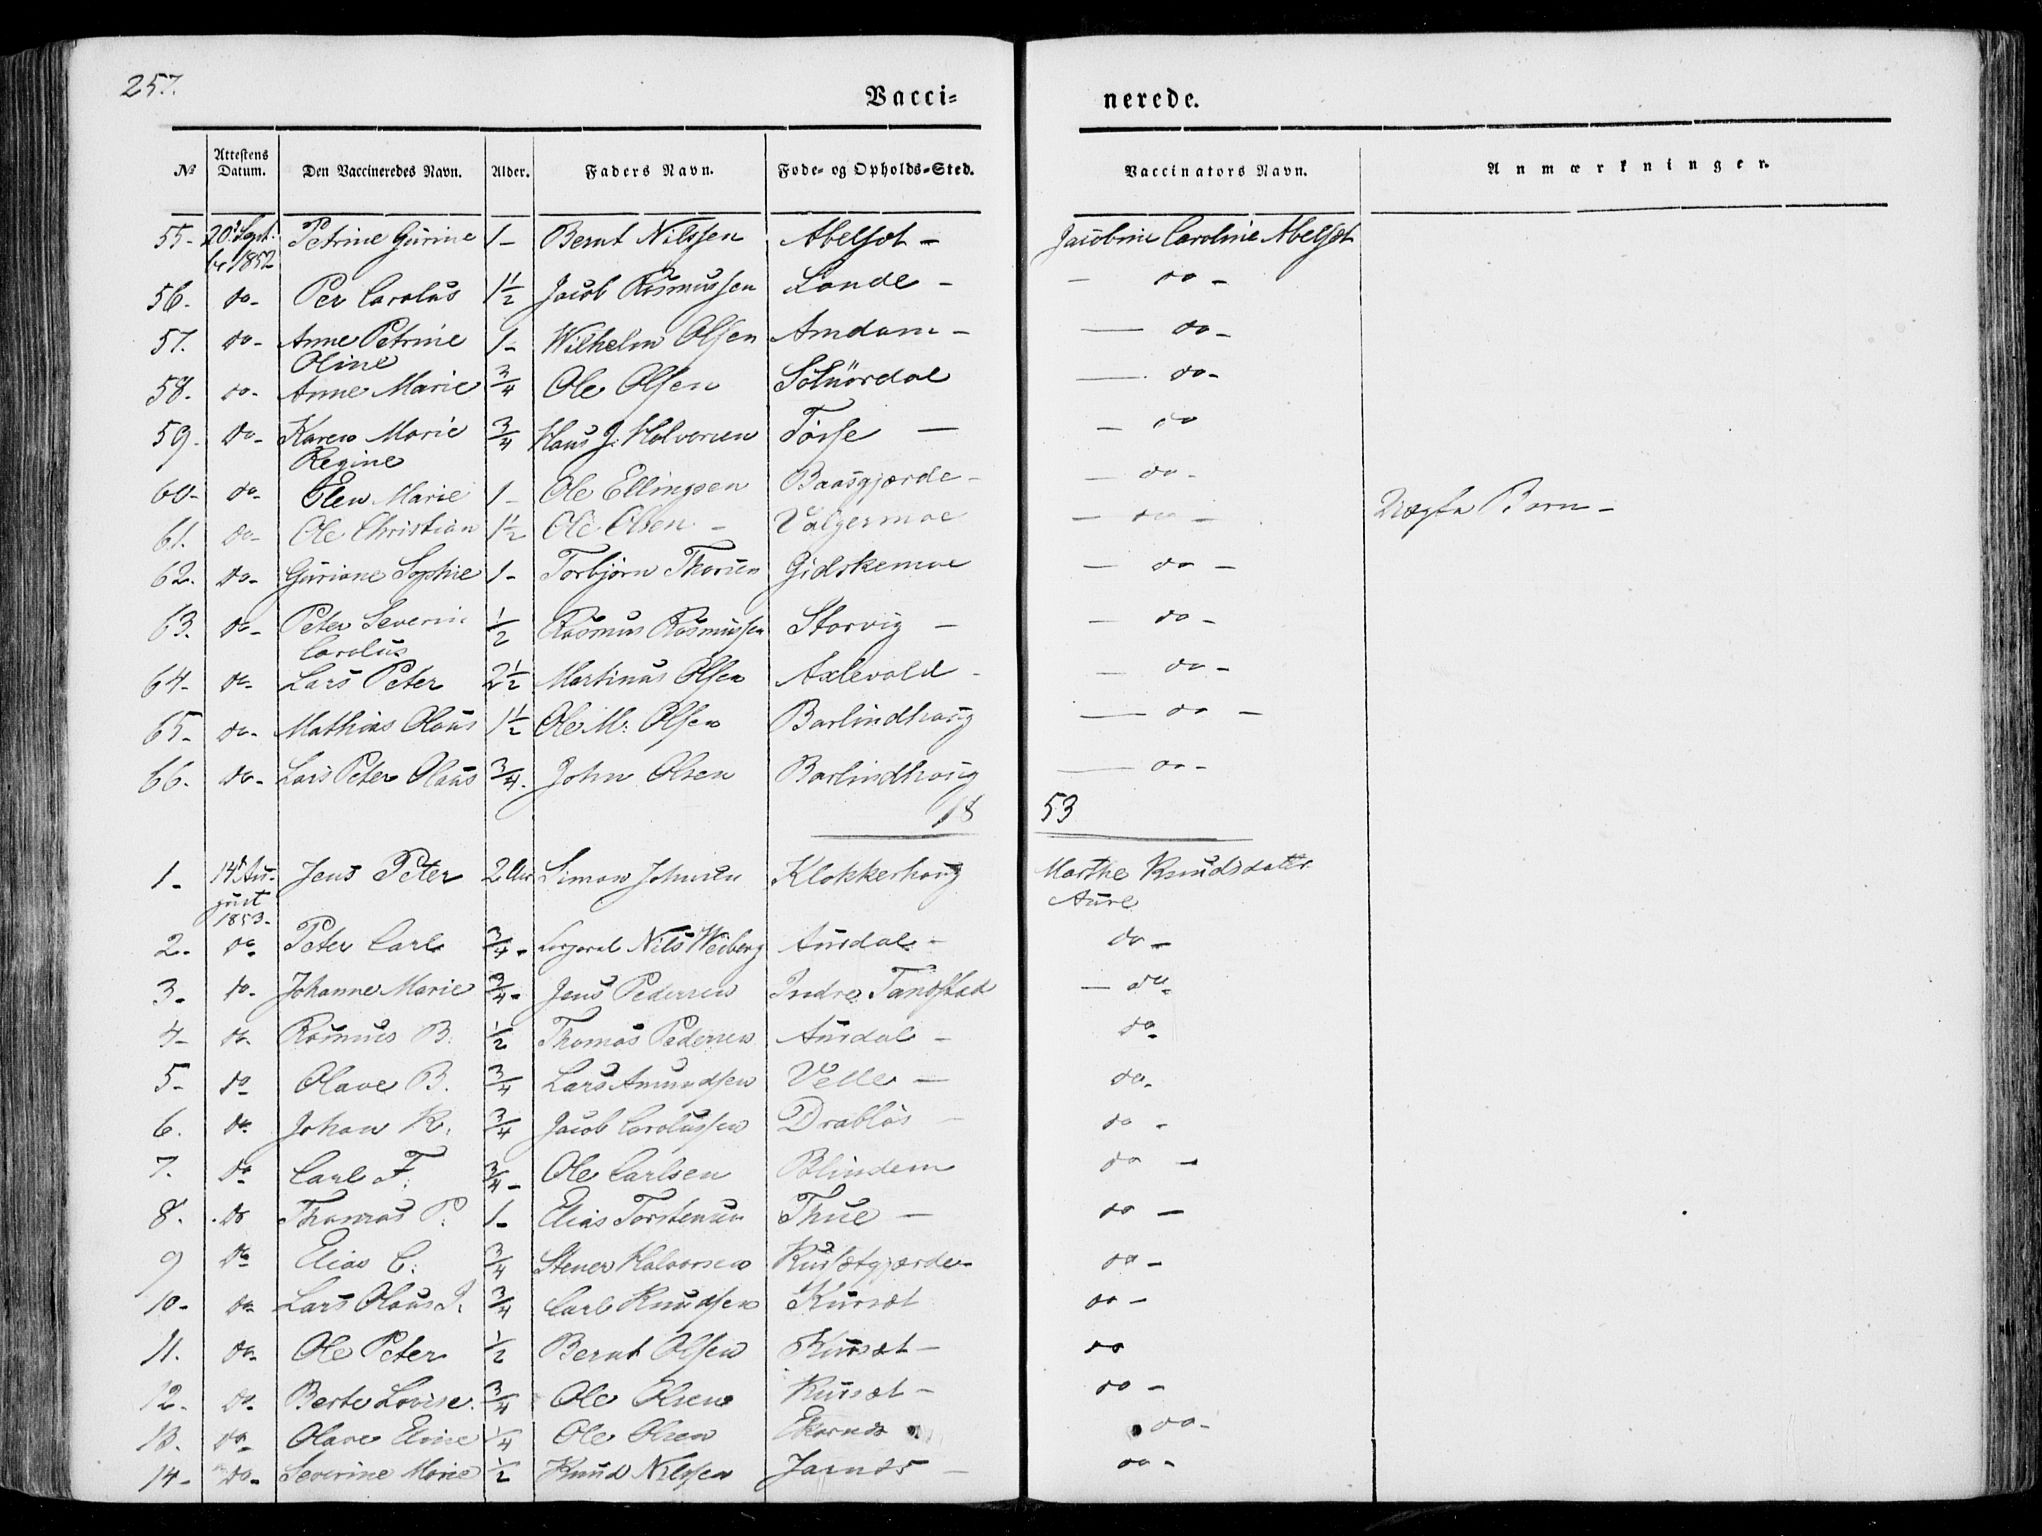 257.
Vacci= nerede.
No Attestens Datum. Den Vaccineredes Navn. Alder. Faders Navn. Fode- og Opholds-Sted. Vaccinators Navn. Anmærkninger.
55- 20. Sept. Petrine Gurine 1- Bernt Nilssen Abelsæt - Jacobine Caroline Abelsæt
br 1852
56. do- Per Carolus 1½ Jacob Rasmussen Lande - - do -
57. do- Anne Petrine 1- Wilhelm Olsen Amdam - - do -
Oline
58. do- Anne Marie ¾ Ole Olsen Solnørdal - do -
59. do- Karen Marie ¾ Hans J. Halvorsen Tøsse - - do
Regine
60- do- Elen Marie 1- Ole Ellingsen Baasgjærde - - do -
61. do- Ole Christian 1½ Ole Olsen - Valgermoe - do - Uægte Barn -
62. do- Guriane Sophie 1- Torbjørn Gidskemoe - do -
63. do- Peter Severin ½ Rasmus Rasmussen Storvig - - do -
Carolus
64- do- Lars Peter 2½ Martinus Olsen Axlevold - - do -
65- do- Mathias Olaus 1½ Ole M. Olsen Barlindhaug - do -
66. do- Lars Peter Olaus ¾. John Olsen Barlindhaug - do -
18 53
1- 14 Au- Jens Peter 2 Simon Johnsen Klokkerhaug Marthe Knudsdater
gust Aure
1853-
2. do Peter Carl ¾- Nils Weiberg Aursdal - do -
3- do- Johanne Marie ¾- Jens Pedersen Indre Tandstad - do -
4- do- Rasmus B. ½ Thomas Pedersen Aursdal - do -
5- do Olave B. ¾ Lars Amundsen Velle - do -
6. do Johan K. ¾ Jacob Carolussen Drabløs - do -
7. do Carl F. ¾- Ole Carlsen Blindem do -
8. do Thomas P. 1- Elias Torstensen Thue - do -
9 do Elias C. ¾ Stener Halvorsen Kursætgjærde- do -
10- do- Lars Olaus ¾ Carl Knudsen Kursæt do -
11. do- Ole Peter ½ Bernt Olsen Kursæt - do
12. do- Berte Lovise. ¾ Ole Olsen Kursæt - do -
13. do- Olave Eline ¼ Ole Olsen Ekornæs do -
14- do- Severine Marie ½ Knud Nilssen Jarnæs - do -